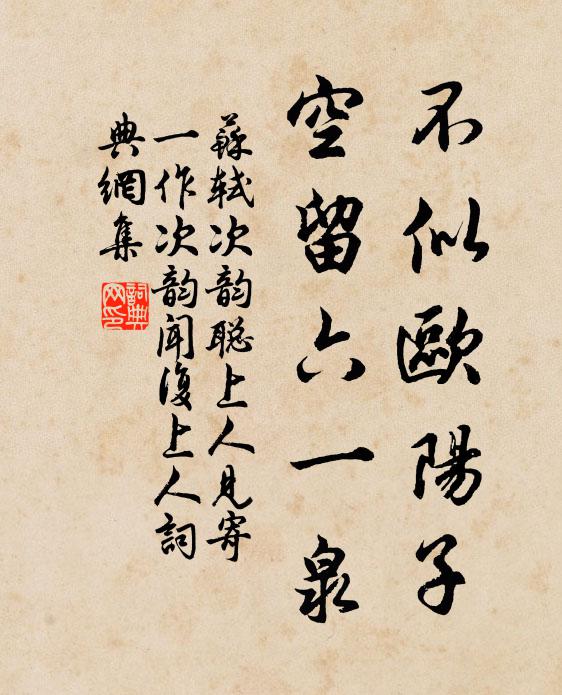 不似歐陽子
空留六一泉
蘇軾次韵聪上人見寄
一作次韵闻復上人詞
典網集
詞典
网印